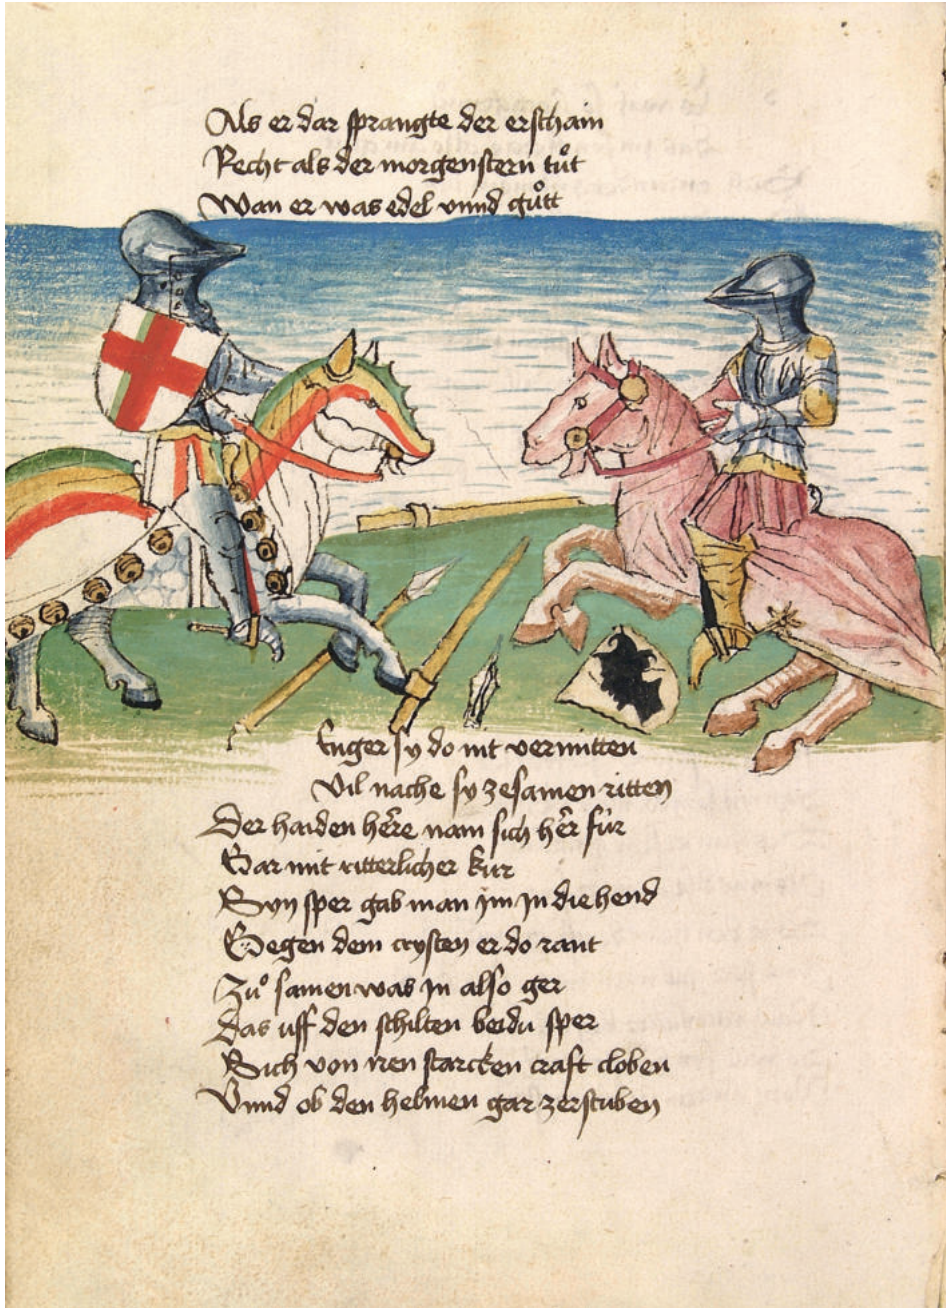 Als er dar sprangte der erschain
Recht als der morgenstern tůt
Wan er was edel vnnd gůtt
Enger sy do nit vermitten
Vil nache sy zesamen ritten
Der haiden here nam sich her für
Gar mit ritterlicher kür
Syn sper gab man jm jn die hend
Gegen dem crysten er do rant
Zů samen was jn also ger
Das uff den schilten beidu sper
Sich von iren starcken craft cloben
Vnnd ob den helmen gar zerstuben